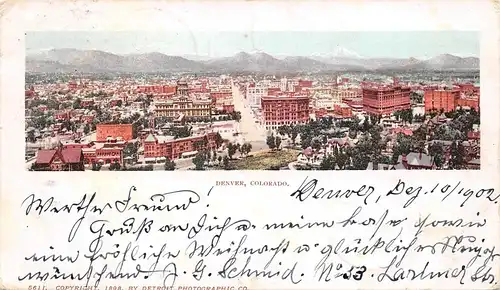 DENVER, COLORADO.
Denver, Dez. 10/1902
Werther Freund!
Gruß an Dich u. meine Base sowie
eine fröhliche Weihnacht u. glückliches Neujahr
wünschend J. G. Schmid, No 53 Larimer St.
5611. COPYRIGHT, 1898, BY DETROIT PHOTOGRAPHIC CO.